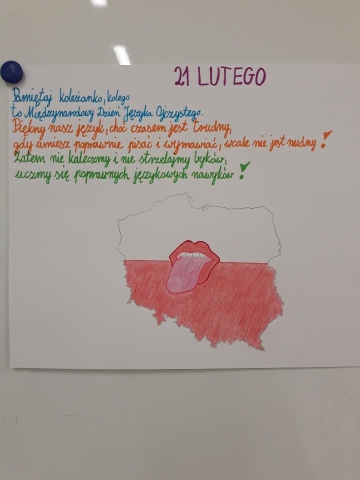 21 LUTEGO
Pamiętaj koleżanko, kolego
to Międzynarodowy Dzień Języka Ojczystego.
Piękny nasz język, choć czasem jest trudny,
gdy umiesz poprawnie pisać i wymawiać, wcale nie jest nudny!
Zatem nie kaleczmy i nie strzelajmy byków,
uczmy się poprawnych językowych nawyków!